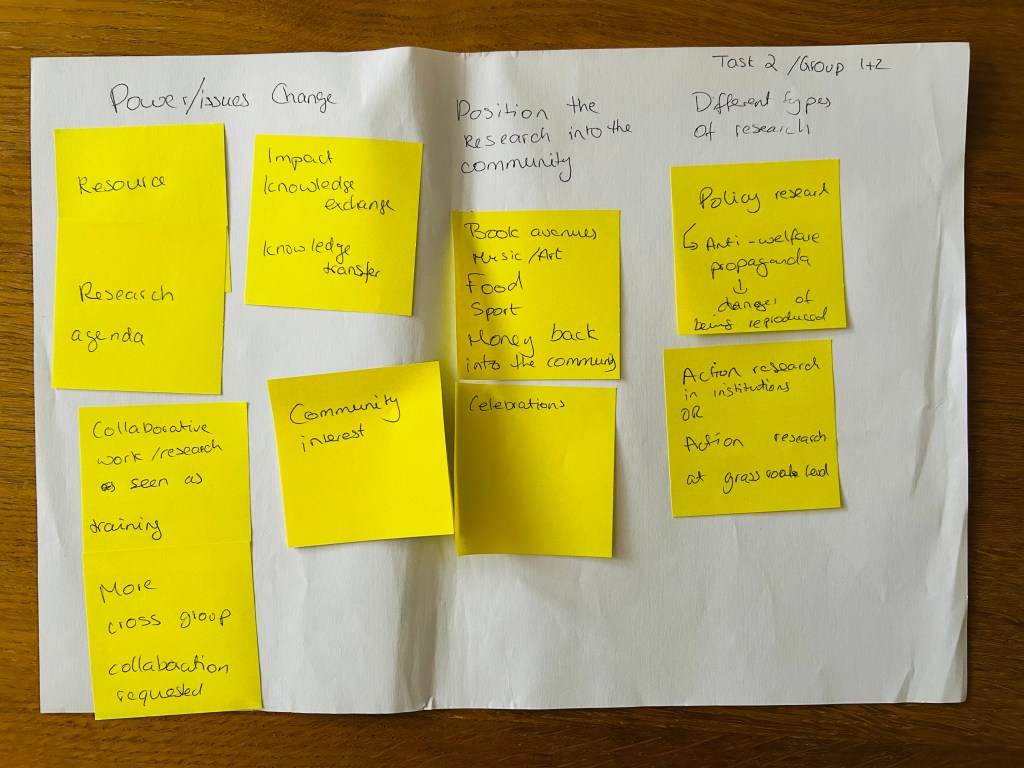 Task 2 / Group 1+2
Power/issues Change
Resource
Research
agenda
Collaborative
work / research
seen as
training
More
cross group
collaboration
requested
Impact
knowledge
exchange
knowledge
transfer
Community
interest
Position the
Research into the
community
Book avenues
Music/Art
Food
Sport
Money back
into the community
Celebrations
Different types
of research
Policy research
↳ Anti-welfare
propaganda
↓
danger of
being reproduced
Action research
in institutions
OR
Action research
at grass